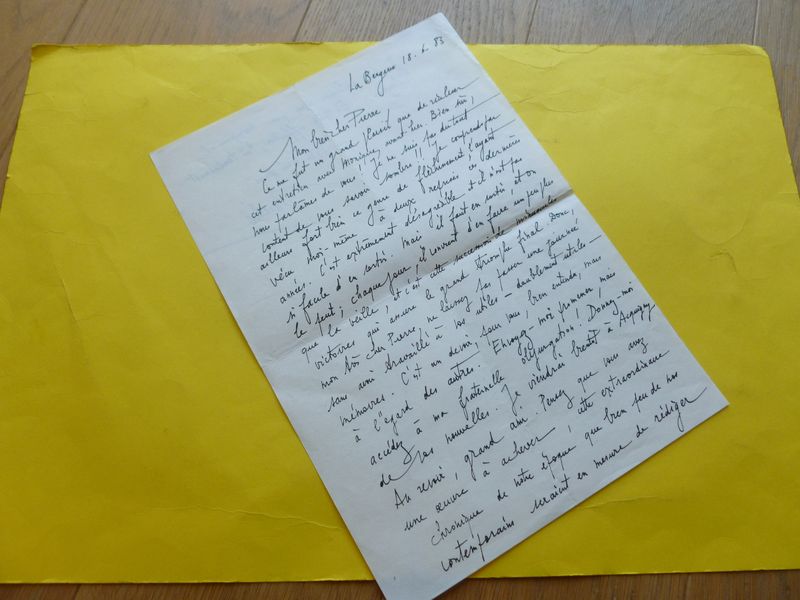 La Bergerie 18.6.83
Mon bien cher Pierre
Ce me fut un grand plaisir que de réaliser
cet entretien avec Monique, avant-hier. Bien sûr,
nous parlâmes de vous ! Je ne suis pas du tout
content de vous savoir sombre !! Je comprends par
ailleurs fort bien ce genre de fléchissement, l'ayant
vécu moi-même à deux reprises ces dernières
années. C'est extrêmement désagréable et il n'est pas
si facile d'en sortir. Mais il faut en sortir et on
le peut ; chaque jour, il convient d'en faire un peu plus
que la veille, et c'est cette succession de minuscules
victoires qui assure le grand triomphe final. Donc,
mon très cher Pierre, ne laissez pas passer une journée
sans avoir travaillé à vos utiles – doublement utiles –
mémoires. C'est un devoir, pour vous, bien entendu, mais
à l'égard des autres. Envoyez-moi promener mais
accédez à ma fraternelle objurgation ! Donnez-moi
de vos nouvelles. Je viendrai bientôt à Acquigny.
Au revoir, grand ami. Pensez que vous avez
une œuvre à achever, cette extraordinaire
chronique de notre époque que bien peu de nos
contemporains seraient en mesure de rédiger